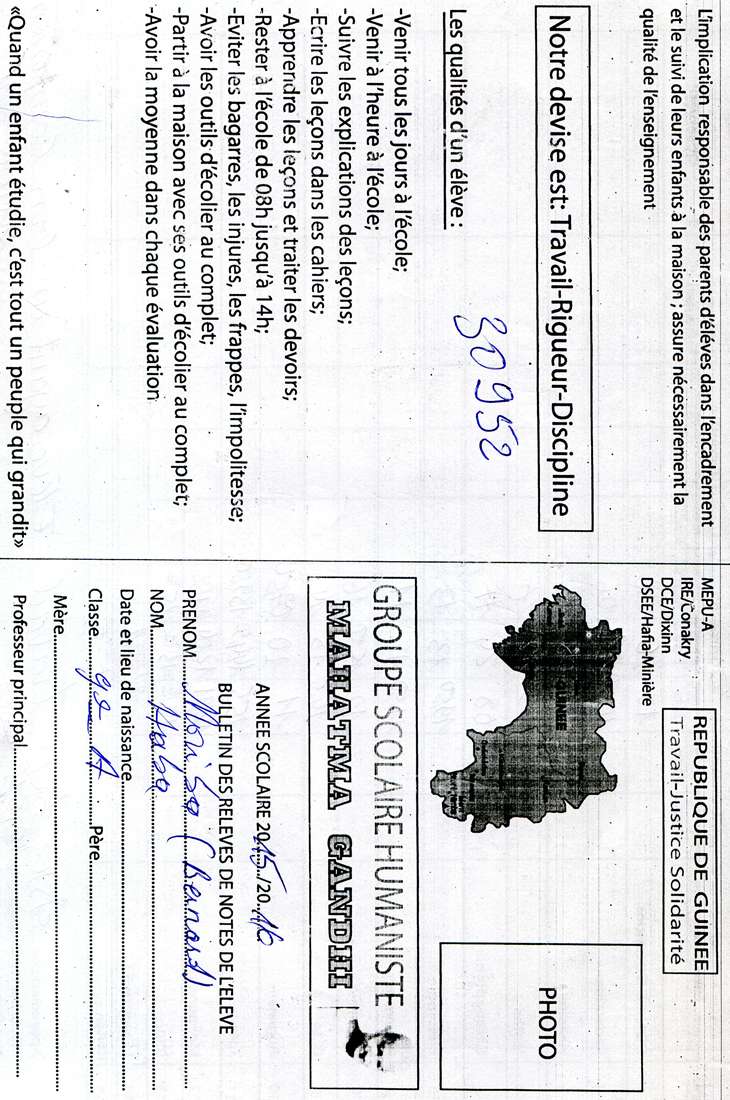 L'implication responsable des parents d'éléves dans l'encadrement
et le suivi de leurs enfants à la maison ; assure nécessairement la
qualité de l'enseignement
Notre devise est: Travail-Rigueur-Discipline
Les qualités d'un élève :
30952
-Venir tous les jours à l'école;
-Venir à l'heure à l'école;
-Suivre les explications des leçons;
-Ecrire les leçons dans les cahiers;
-Apprendre les leçons et traiter les devoirs;
-Rester à l'école de 08h jusqu'à 14h;
-Eviter les bagarres, les injures, les frappes, l'impolitesse;
-Avoir les outils d'écolier au complet;
-Partir à la maison avec ses outils d'écolier au complet;
-Avoir la moyenne dans chaque évaluation
«Quand un enfant étudie, c'est tout un peuple qui grandit»
MEPU-A
IRE/Conakry
DCE/Dixinn
DSEE/Hafia-Minière
REPUBLIQUE DE GUINEE
Travail-Justice Solidarité
GUINEE
PHOTO
GROUPE SCOLAIRE HUMANISTE
MAHATMA GANDHI
ANNEE SCOLAIRE 2015/20.16
BULLETIN DES RELEVES DE NOTES DE L'ELEVE
PRENOM....Moriba (Bernard)
NOM....Haba
Date et lieu de naissance
Classe....9e A....Père
Mère
Professeur principal